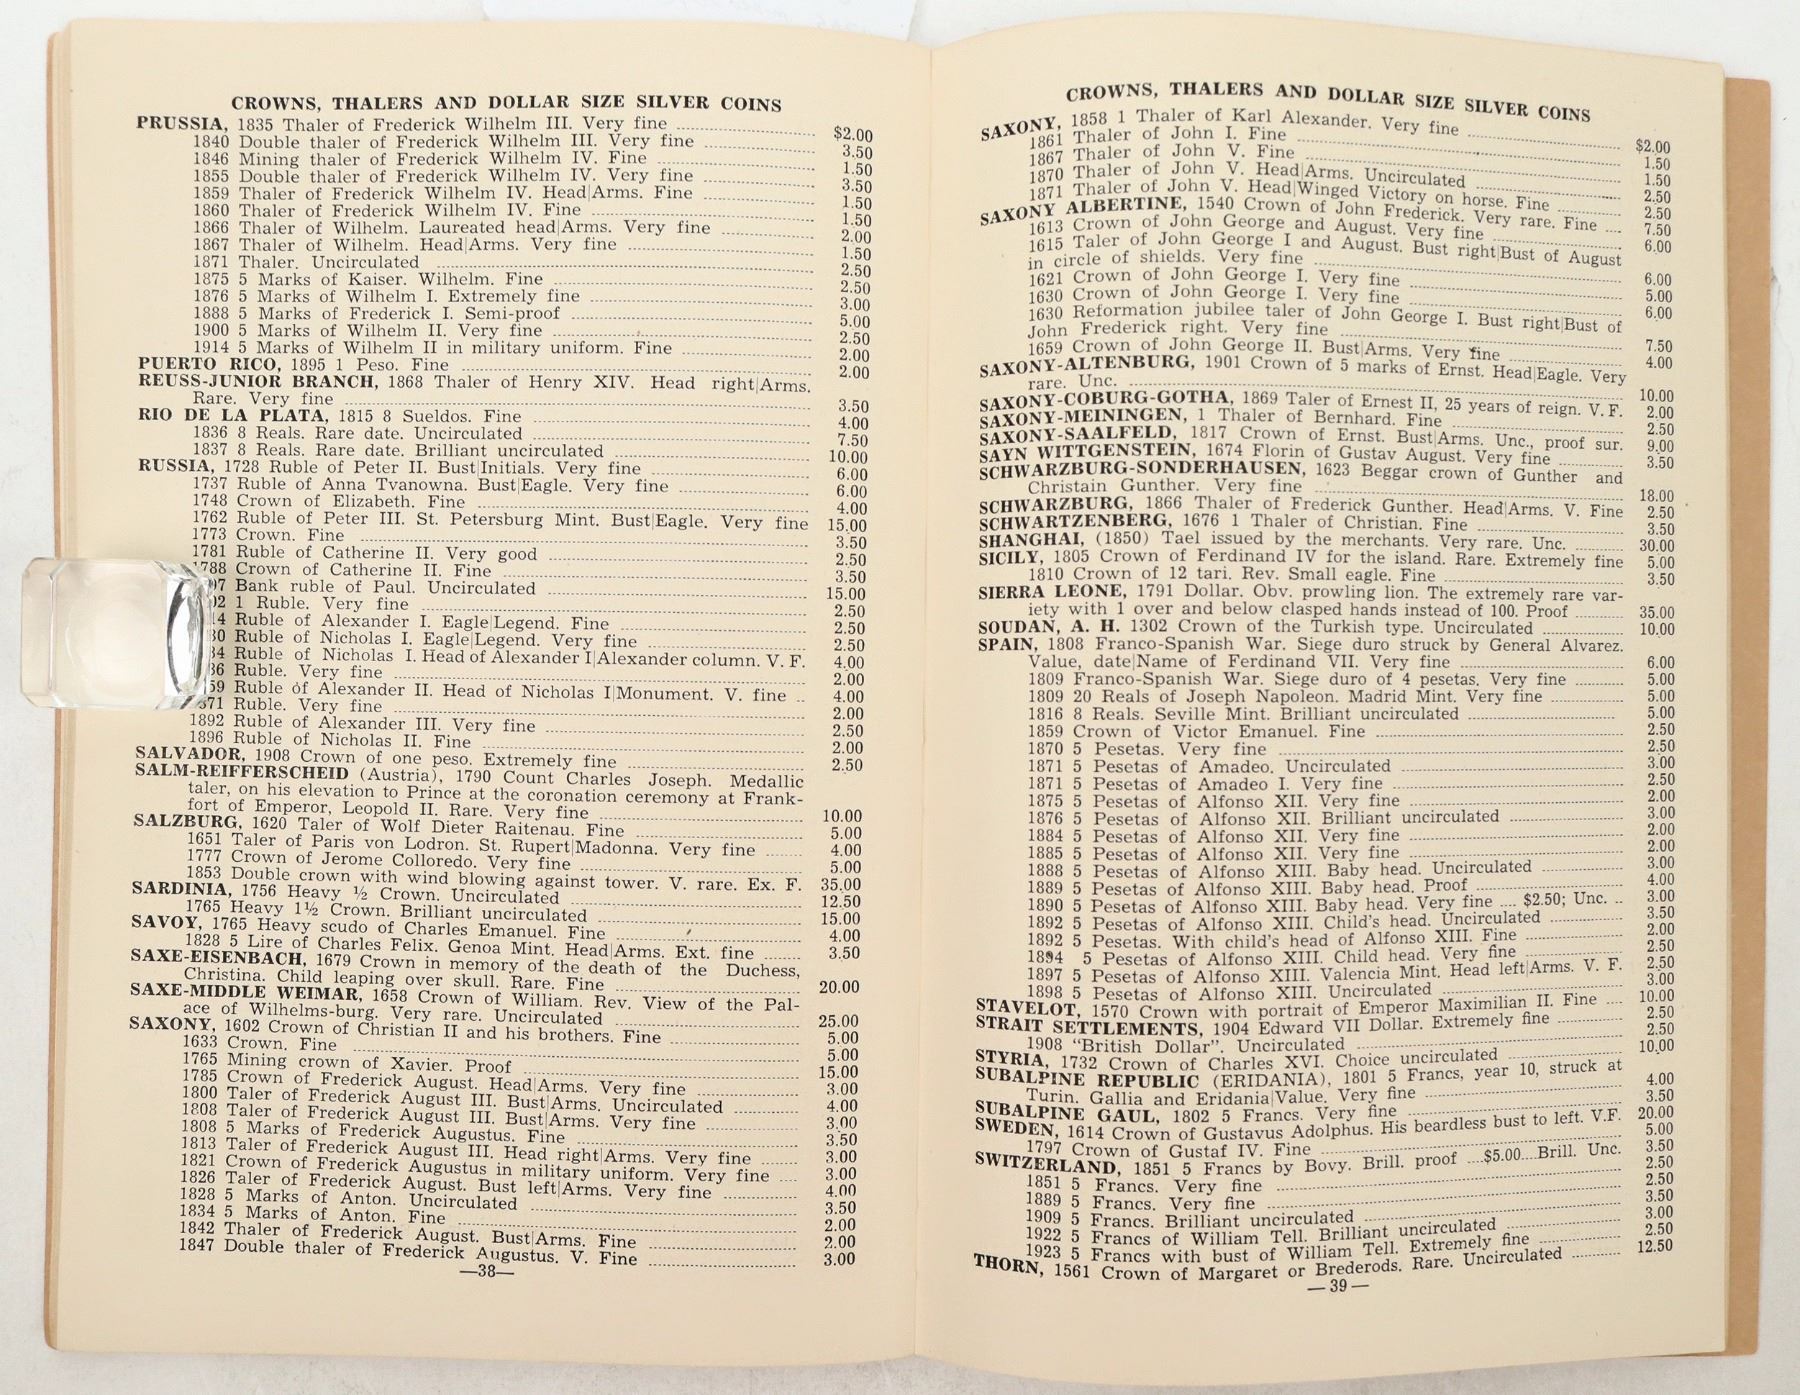 CROWNS, THALERS AND DOLLAR SIZE SILVER COINS
PRUSSIA, 1835 Thaler of Frederick Wilhelm III. Very fine $2.00
1840 Double thaler of Frederick Wilhelm III. Very fine 3.50
1846 Mining thaler of Frederick Wilhelm IV. Fine 1.50
1855 Double thaler of Frederick Wilhelm IV. Very fine 3.50
1859 Thaler of Frederick Wilhelm IV. Head|Arms. Fine 1.50
1860 Thaler of Frederick Wilhelm IV. Fine 1.50
1866 Thaler of Wilhelm. Laureated head|Arms. Very fine 2.00
1867 Thaler of Wilhelm. Head|Arms. Very fine 1.50
1871 Thaler. Uncirculated 2.50
1875 5 Marks of Kaiser. Wilhelm. Fine 2.50
1876 5 Marks of Wilhelm I. Extremely fine 3.00
1888 5 Marks of Frederick I. Semi-proof 5.00
1900 5 Marks of Wilhelm II. Very fine 2.50
1914 5 Marks of Wilhelm II in military uniform. Fine 2.00
PUERTO RICO, 1895 1 Peso. Fine 2.00
REUSS-JUNIOR BRANCH, 1868 Thaler of Henry XIV. Head right|Arms.
Rare. Very fine 3.50
RIO DE LA PLATA, 1815 8 Sueldos. Fine 4.00
1836 8 Reals. Rare date. Uncirculated 7.50
1837 8 Reals. Rare date. Brilliant uncirculated 10.00
RUSSIA, 1728 Ruble of Peter II. Bust|Initials. Very fine 6.00
1737 Ruble of Anna Tvanowna. Bust|Eagle. Very fine 6.00
1748 Crown of Elizabeth. Fine 4.00
1762 Ruble of Peter III. St. Petersburg Mint. Bust|Eagle. Very fine 15.00
1773 Crown. Fine 3.50
1781 Ruble of Catherine II. Very good 2.50
1788 Crown of Catherine II. Fine 3.50
97 Bank ruble of Paul. Uncirculated 15.00
02 1 Ruble. Very fine 2.50
14 Ruble of Alexander I. Eagle|Legend. Fine 2.50
30 Ruble of Nicholas I. Eagle|Legend. Very fine 2.50
34 Ruble of Nicholas I. Head of Alexander I|Alexander column. V. F. 4.00
36 Ruble. Very fine 2.00
59 Ruble of Alexander II. Head of Nicholas I|Monument. V. fine .. 4.00
1871 Ruble. Very fine 2.00
1892 Ruble of Alexander III. Very fine 2.50
1896 Ruble of Nicholas II. Fine 2.00
SALVADOR, 1908 Crown of one peso. Extremely fine 2.50
SALM-REIFFERSCHEID (Austria), 1790 Count Charles Joseph. Medallic
taler, on his elevation to Prince at the coronation ceremony at Frank-
fort of Emperor, Leopold II. Rare. Very fine 10.00
SALZBURG, 1620 Taler of Wolf Dieter Raitenau. Fine 5.00
1651 Taler of Paris von Lodron. St. Rupert|Madonna. Very fine 4.00
1777 Crown of Jerome Colloredo. Very fine 5.00
1853 Double crown with wind blowing against tower. V. rare. Ex. F. 35.00
SARDINIA, 1756 Heavy ½ Crown. Uncirculated 12.50
1765 Heavy 1½ Crown. Brilliant uncirculated 15.00
SAVOY, 1765 Heavy scudo of Charles Emanuel. Fine 4.00
1828 5 Lire of Charles Felix. Genoa Mint. Head|Arms. Ext. fine 3.50
SAXE-EISENBACH, 1679 Crown in memory of the death of the Duchess,
Christina. Child leaping over skull. Rare. Fine 20.00
SAXE-MIDDLE WEIMAR, 1658 Crown of William. Rev. View of the Pal-
ace of Wilhelms-burg. Very rare. Uncirculated 25.00
SAXONY, 1602 Crown of Christian II and his brothers. Fine 5.00
1633 Crown. Fine 5.00
1765 Mining crown of Xavier. Proof 15.00
1785 Crown of Frederick August. Head|Arms. Very fine 3.00
1800 Taler of Frederick August III. Bust|Arms. Uncirculated 4.00
1808 Taler of Frederick August III. Bust|Arms. Very fine 3.00
1808 5 Marks of Frederick Augustus. Fine 3.50
1813 Taler of Frederick August III. Head right|Arms. Very fine 3.00
1821 Crown of Frederick Augustus in military uniform. Very fine 3.00
1826 Taler of Frederick August. Bust left|Arms. Very fine 4.00
1828 5 Marks of Anton. Uncirculated 3.50
1834 5 Marks of Anton. Fine 2.00
1842 Thaler of Frederick August. Bust|Arms. Fine 2.00
1847 Double thaler of Frederick Augustus. V. Fine 3.00
—38—
CROWNS, THALERS AND DOLLAR SIZE SILVER COINS
SAXONY, 1858 1 Thaler of Karl Alexander. Very fine $2.00
1861 Thaler of John I. Fine 1.50
1867 Thaler of John V. Fine 1.50
1870 Thaler of John V. Head|Arms. Uncirculated 2.50
1871 Thaler of John V. Head|Winged Victory on horse. Fine 2.50
SAXONY ALBERTINE, 1540 Crown of John Frederick. Very rare. Fine 7.50
1613 Crown of John George and August. Very fine 6.00
1615 Taler of John George I and August. Bust right|Bust of August
in circle of shields. Very fine 6.00
1621 Crown of John George I. Very fine 5.00
1630 Crown of John George I. Very fine 6.00
1630 Reformation jubilee taler of John George I. Bust right|Bust of
John Frederick right. Very fine 7.50
1659 Crown of John George II. Bust|Arms. Very fine 4.00
SAXONY-ALTENBURG, 1901 Crown of 5 marks of Ernst. Head|Eagle. Very
rare. Unc. 10.00
SAXONY-COBURG-GOTHA, 1869 Taler of Ernest II, 25 years of reign. V. F. 2.00
SAXONY-MEININGEN, 1 Thaler of Bernhard. Fine 2.50
SAXONY-SAALFELD, 1817 Crown of Ernst. Bust|Arms. Unc., proof sur. 9.00
SAYN WITTGENSTEIN, 1674 Florin of Gustav August. Very fine 3.50
SCHWARZBURG-SONDERHAUSEN, 1623 Beggar crown of Gunther and
Christain Gunther. Very fine 18.00
SCHWARZBURG, 1866 Thaler of Frederick Gunther. Head|Arms. V. Fine 2.50
SCHWARTZENBERG, 1676 1 Thaler of Christian. Fine 3.50
SHANGHAI, (1850) Tael issued by the merchants. Very rare. Unc. 30.00
SICILY, 1805 Crown of Ferdinand IV for the island. Rare. Extremely fine 5.00
1810 Crown of 12 tari. Rev. Small eagle. Fine 3.50
SIERRA LEONE, 1791 Dollar. Obv. prowling lion. The extremely rare var-
iety with 1 over and below clasped hands instead of 100. Proof 35.00
SOUDAN, A. H. 1302 Crown of the Turkish type. Uncirculated 10.00
SPAIN, 1808 Franco-Spanish War. Siege duro struck by General Alvarez.
Value, date|Name of Ferdinand VII. Very fine 6.00
1809 Franco-Spanish War. Siege duro of 4 pesetas. Very fine 5.00
1809 20 Reals of Joseph Napoleon. Madrid Mint. Very fine 5.00
1816 8 Reals. Seville Mint. Brilliant uncirculated 5.00
1859 Crown of Victor Emanuel. Fine 2.50
1870 5 Pesetas. Very fine 2.50
1871 5 Pesetas of Amadeo. Uncirculated 3.00
1871 5 Pesetas of Amadeo I. Very fine 2.50
1875 5 Pesetas of Alfonso XII. Very fine 2.00
1876 5 Pesetas of Alfonso XII. Brilliant uncirculated 3.00
1884 5 Pesetas of Alfonso XII. Very fine 2.00
1885 5 Pesetas of Alfonso XII. Very fine 2.00
1888 5 Pesetas of Alfonso XIII. Baby head. Uncirculated 3.00
1889 5 Pesetas of Alfonso XIII. Baby head. Proof 4.00
1890 5 Pesetas of Alfonso XIII. Baby head. Very fine .... $2.50; Unc. .. 3.00
1892 5 Pesetas of Alfonso XIII. Child's head. Uncirculated 3.50
1892 5 Pesetas. With child's head of Alfonso XIII. Fine 2.00
1894 5 Pesetas of Alfonso XIII. Child head. Very fine 2.50
1897 5 Pesetas of Alfonso XIII. Valencia Mint. Head left|Arms. V. F. 2.50
1898 5 Pesetas of Alfonso XIII. Uncirculated 3.00
STAVELOT, 1570 Crown with portrait of Emperor Maximilian II. Fine 10.00
STRAIT SETTLEMENTS, 1904 Edward VII Dollar. Extremely fine 2.50
1908 "British Dollar". Uncirculated 2.50
STYRIA, 1732 Crown of Charles XVI. Choice uncirculated 10.00
SUBALPINE REPUBLIC (ERIDANIA), 1801 5 Francs, year 10, struck at
Turin. Gallia and Eridania|Value. Very fine 4.00
SUBALPINE GAUL, 1802 5 Francs. Very fine 3.50
SWEDEN, 1614 Crown of Gustavus Adolphus. His beardless bust to left. V.F. 20.00
1797 Crown of Gustaf IV. Fine 5.00
SWITZERLAND, 1851 5 Francs by Bovy. Brill. proof ....$5.00....Brill. Unc. 3.50
1851 5 Francs. Very fine 2.50
1889 5 Francs. Very fine 2.50
1909 5 Francs. Brilliant uncirculated 3.50
1922 5 Francs of William Tell. Brilliant uncirculated 3.00
1923 5 Francs with bust of William Tell. Extremely fine 2.50
THORN, 1561 Crown of Margaret or Brederods. Rare. Uncirculated 12.50
—39—